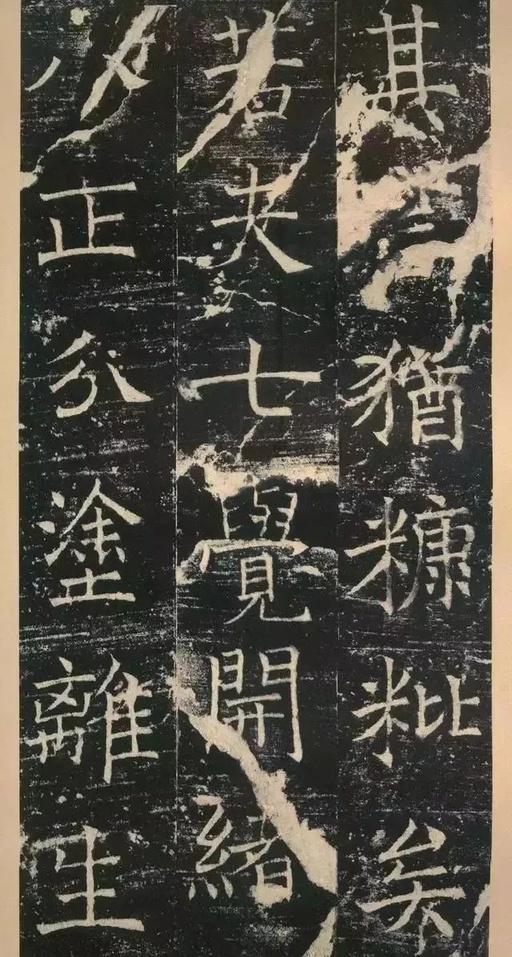 其猶糠粃矣
若夫七覺開緒
八正分塗離生